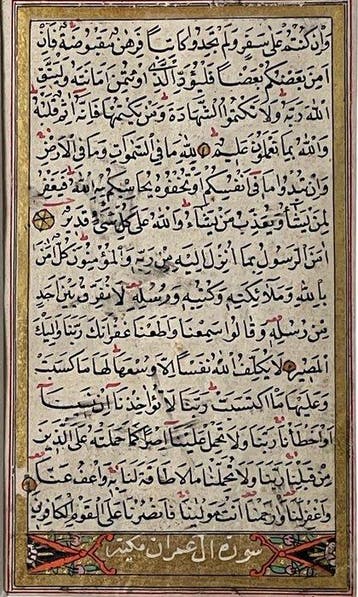 وَإِنْ كُنْتُمْ عَلَىٰ سَفَرٍ وَلَمْ تَجِدُوا كَاتِبًا فَرِهَٰنٌ مَقْبُوضَةٌ فَإِنْ
اَمِنَ بَعْضُكُمْ بَعْضًا فَلْيُؤَدِّ الَّذِي اؤْتُمِنَ اَمَانَتَهُ وَلْيَتَّقِ
اللهَ رَبَّهُ وَلَا تَكْتُمُوا الشَّهَادَةَ وَمَنْ يَكْتُمْهَا فَاِنَّهُ اٰثِمٌ قَلْبُهُ
وَاللهُ بِمَا تَعْمَلُونَ عَلِيمٌ لِلّٰهِ مَا فِي السَّمٰوَاتِ وَمَا فِي الْاَرْضِ
وَاِنْ تُبْدُوا مَا فِي اَنْفُسِكُمْ اَوْ تُخْفُوهُ يُحَاسِبْكُمْ بِهِ اللهُ فَيَغْفِرُ
لِمَنْ يَشَاءُ وَيُعَذِّبُ مَنْ يَشَاءُ وَاللهُ عَلَى كُلِّ شَيْءٍ قَدِيرٌ
اٰمَنَ الرَّسُولُ بِمَا اُنْزِلَ اِلَيْهِ مِنْ رَبِّهِ وَالْمُؤْمِنُونَ كُلٌّ اٰمَنَ
بِاللهِ وَمَلٰئِكَتِهِ وَكُتُبِهِ وَرُسُلِهِ لَا نُفَرِّقُ بَيْنَ اَحَدٍ
مِنْ رُسُلِهِ وَقَالُوا سَمِعْنَا وَاَطَعْنَا غُفْرَانَكَ رَبَّنَا وَاِلَيْكَ
الْمَصِيرُ لَا يُكَلِّفُ اللهُ نَفْسًا اِلَّا وُسْعَهَا لَهَا مَا كَسَبَتْ
وَعَلَيْهَا مَا اكْتَسَبَتْ رَبَّنَا لَا تُؤَاخِذْنَا اِنْ نَسِينَا
اَوْ اَخْطَأْنَا رَبَّنَا وَلَا تَحْمِلْ عَلَيْنَا اِصْرًا كَمَا حَمَلْتَهُ عَلَى الَّذِينَ
مِنْ قَبْلِنَا رَبَّنَا وَلَا تُحَمِّلْنَا مَا لَا طَاقَةَ لَنَا بِهِ وَاعْفُ عَنَّا
وَاغْفِرْ لَنَا وَارْحَمْنَا اَنْتَ مَوْلٰينَا فَانْصُرْنَا عَلَى الْقَوْمِ الْكَافِرِينَ
سورة ال عمران مكية